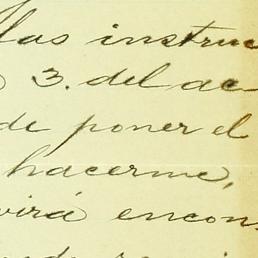 las instruc
3. del ac
de poner el
hacerme,
virá encon